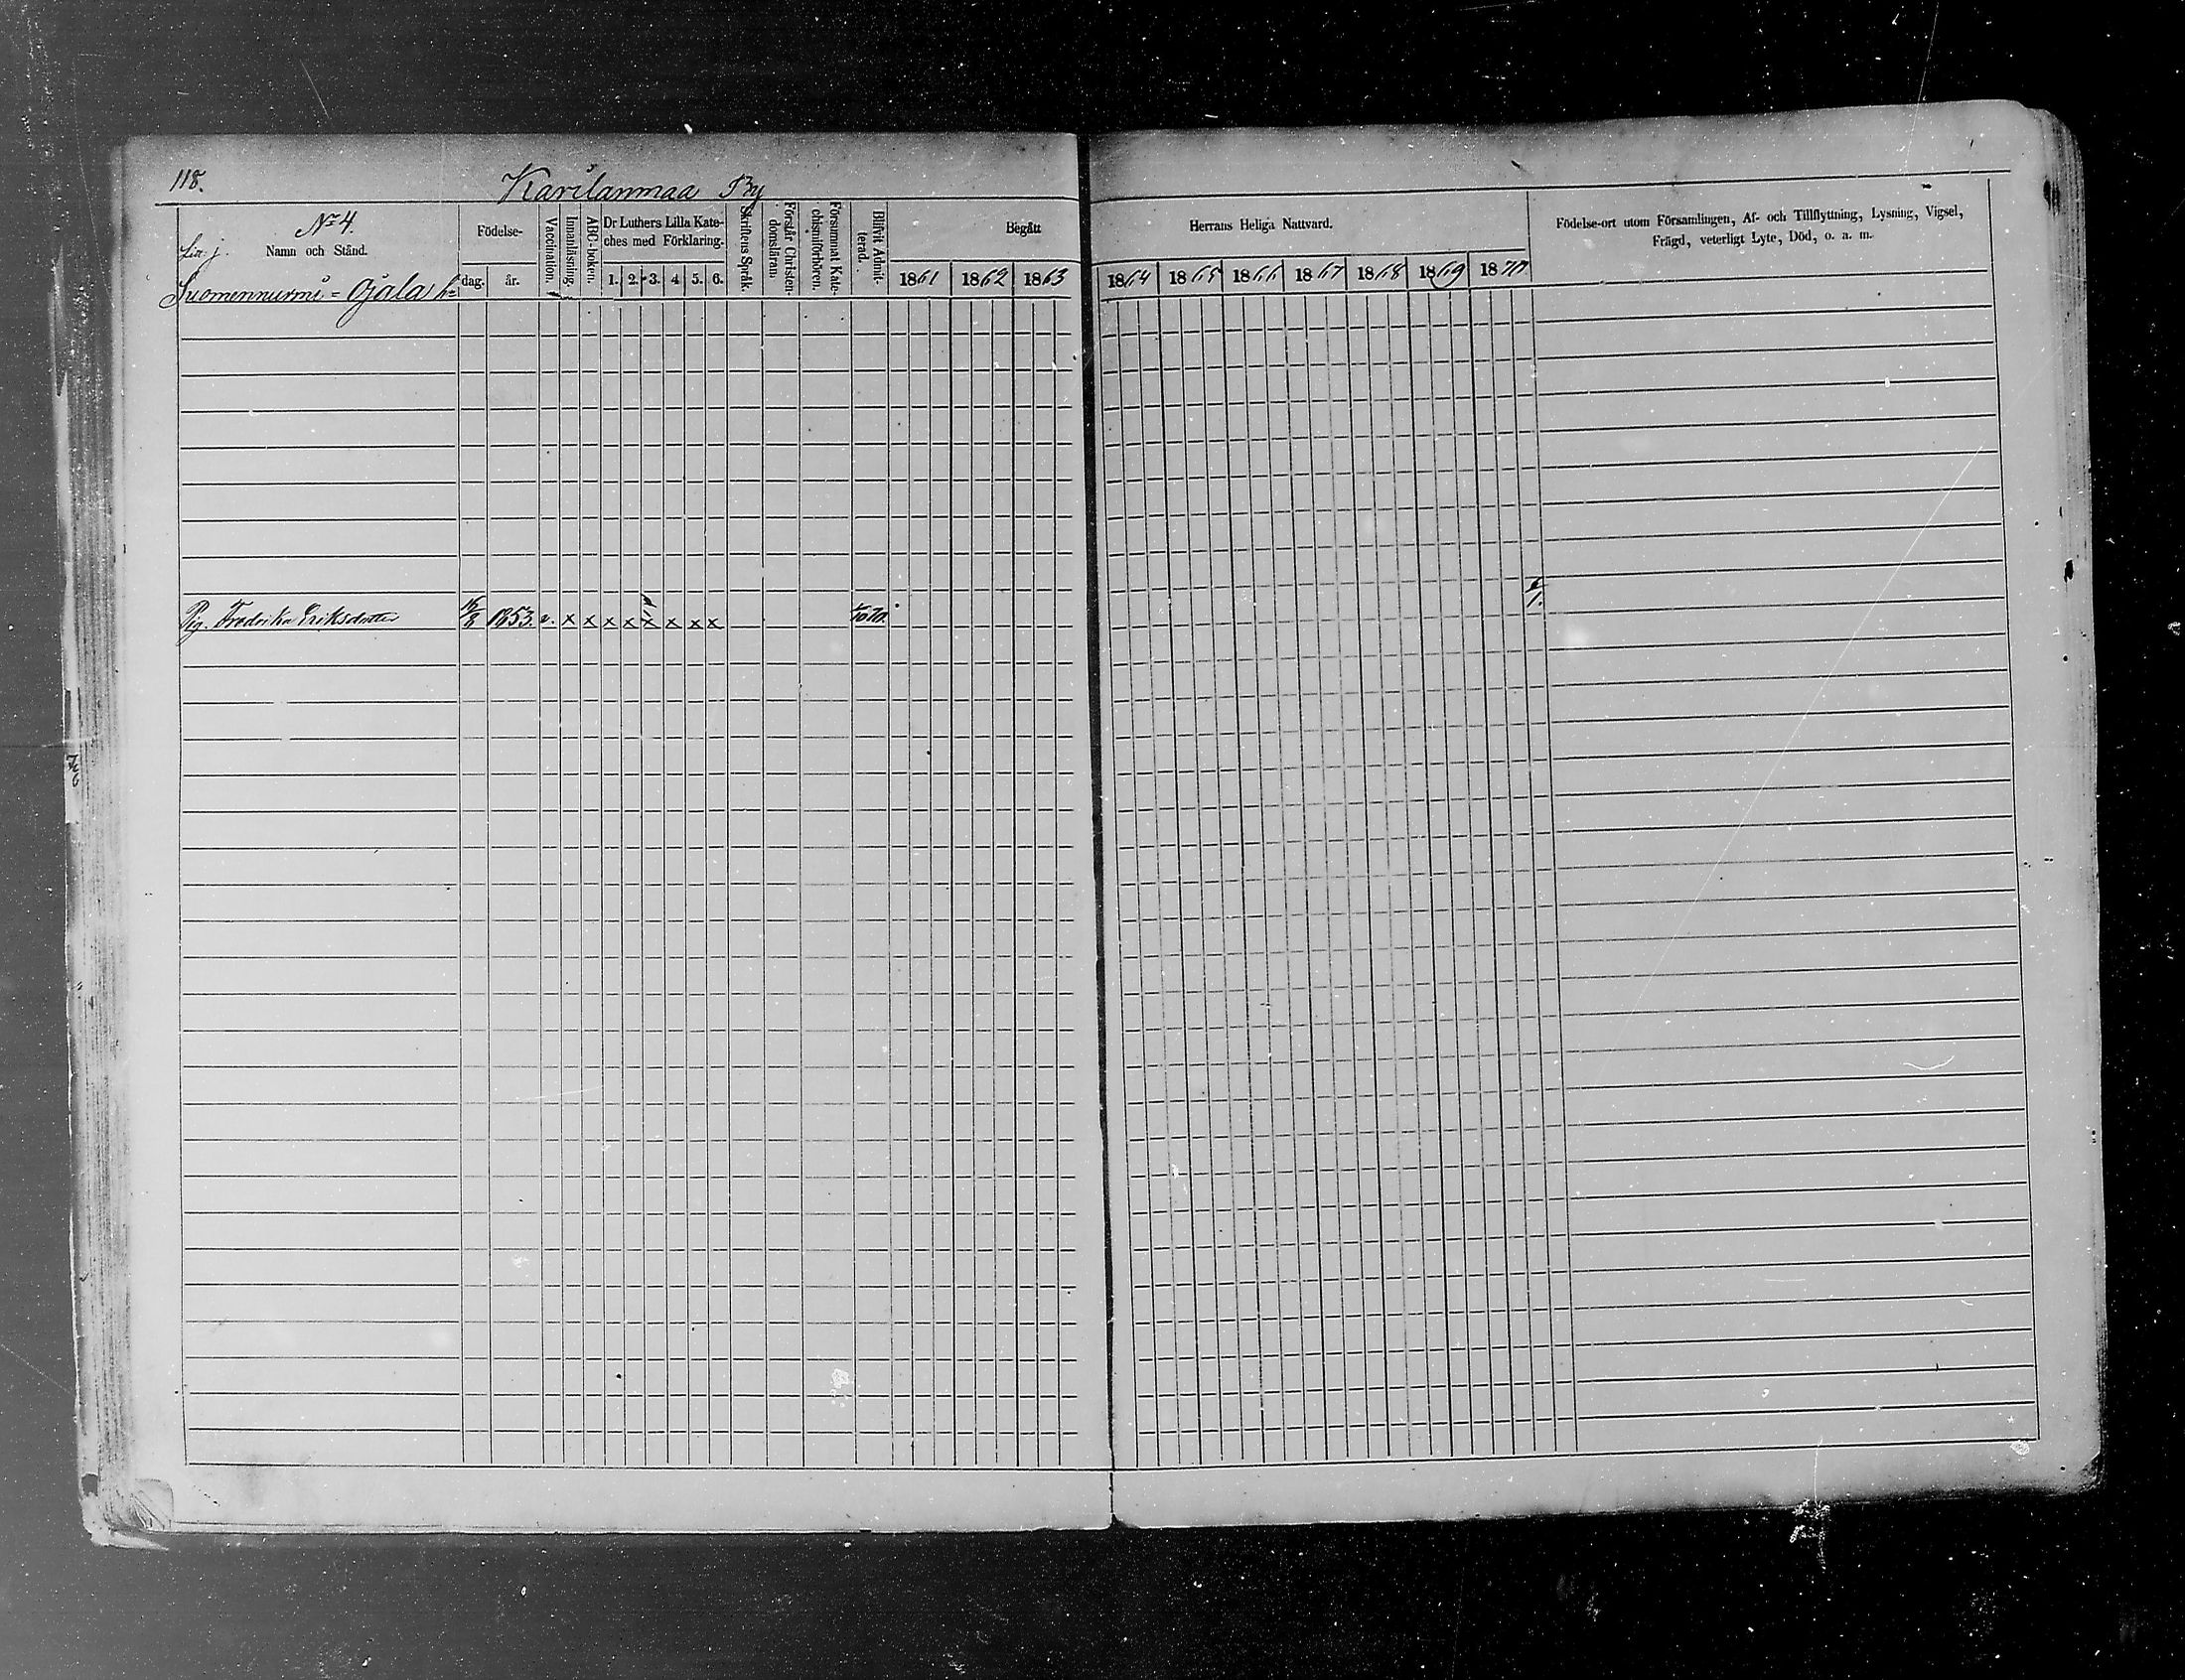 118.
Karilanmaa By
No 4.
Lin. j.
Namn och Stånd.
Födelse-
dag. år.
Vaccination.
Innanläsning.
ABC-boken.
Dr Luthers Lilla Kate-
ches med Förklaring.
1. 2. 3. 4 5. 6.
Skriftens Språk.
Förstår Christen-
domsläran.
Försummat Kate-
chismiförhören.
Blifvit Admit-
terad.
Begått
1861 1862 1863
Herrans Heliga Nattvard.
1864 1865 1866 1867 1868 1869 1870
Födelse-ort utom Församlingen, Af- och Tillflyttning, Lysning, Vigsel,
Frägd, veterligt Lyte, Död, o. a. m.
Suomennurmi = Ojala
Pig. Fredrika Eriksdotter 1853. v. x x x x x x x x